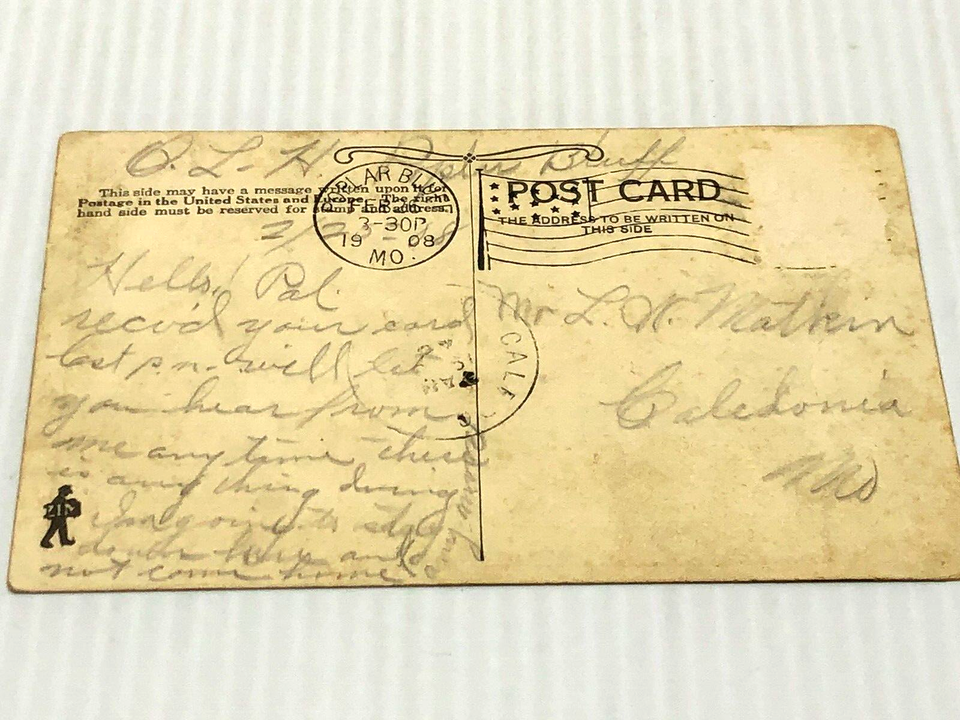 O. L. H. Poplar Bluff
This side may have a message written upon it for
Postage in the United States and Europe. The right
hand side must be reserved for stamp and address.
POPLAR BLUFF
FEB 26
3-30P
1908
MO.
POST CARD
THE ADDRESS TO BE WRITTEN ON
THIS SIDE
Hello! Pal.
recv'd your card
last p.m. will let
you hear from
me any time there
is any thing doing
I'm going to stay
down here and
not come home
CAL
AM
Mr L. H. Matkin
Caledonia
Mo
ZIM